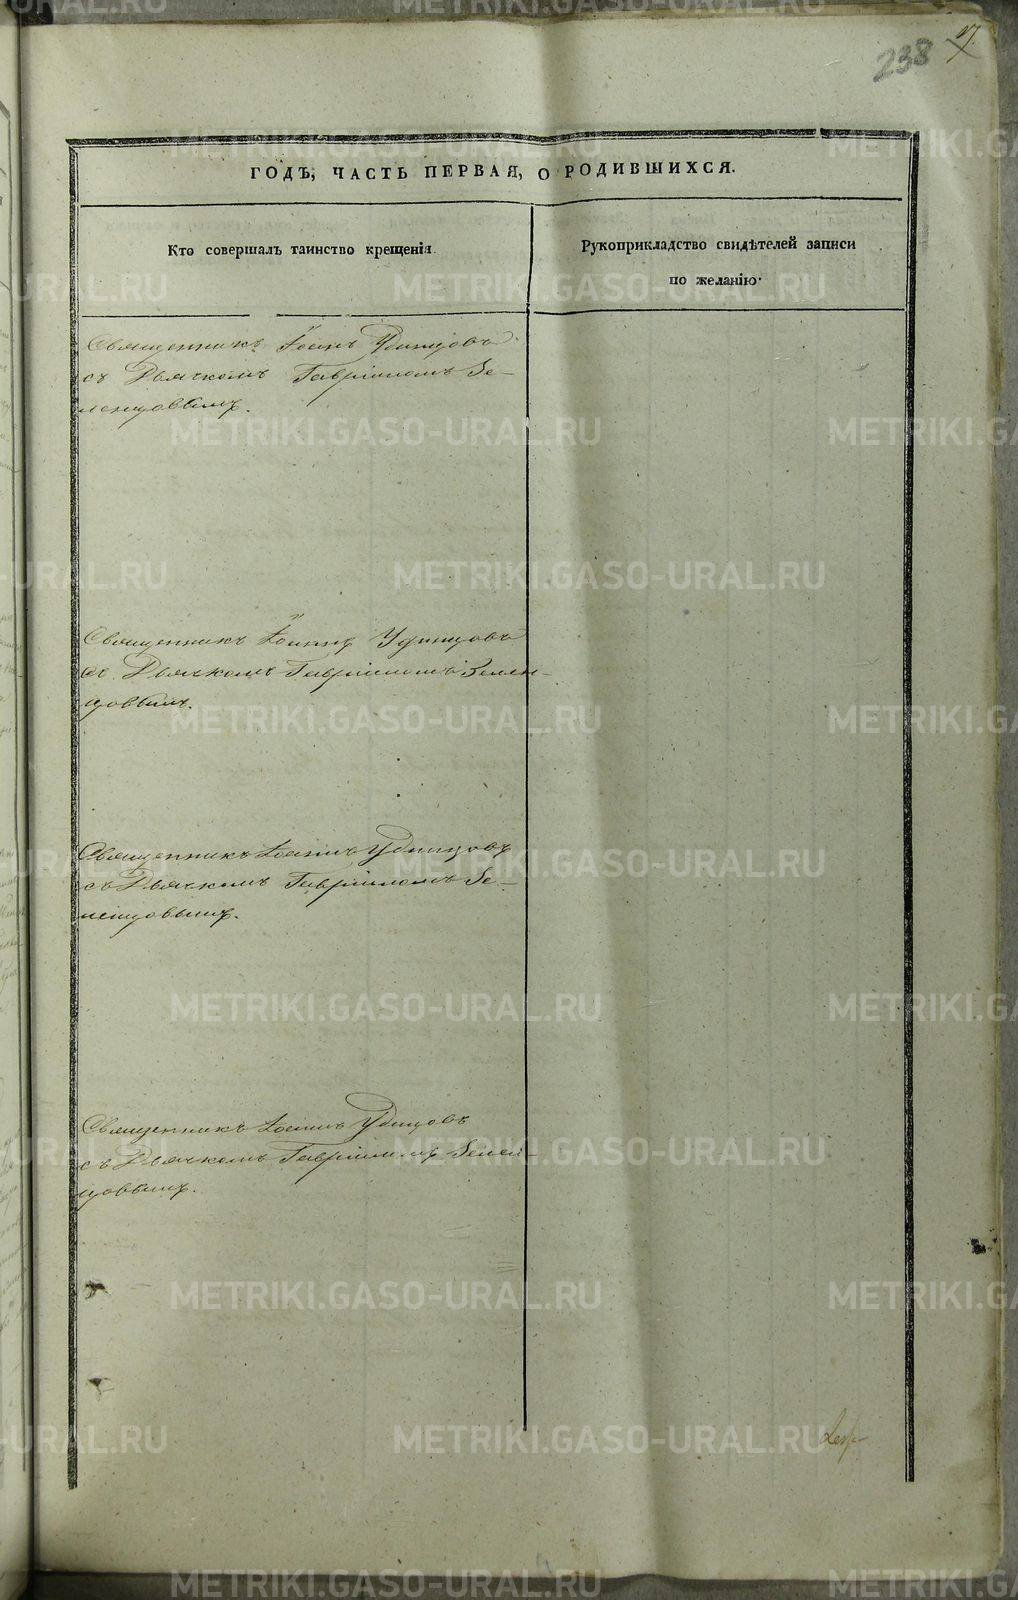 238
ГОДЪ, ЧАСТЬ ПЕРВАЯ, О РОДИВШИХСЯ.
Кто совершалъ таинство крещенія.
Рукоприкладство свидѣтелей записи
по желанію.
Священникъ Іоаннъ Удинцовъ
съ Дьячкомъ Гавріиломъ Зе-
ленцовымъ.
Священникъ Іоаннъ Удинцовъ
съ Дьячкомъ Гавріиломъ Зелен-
цовымъ.
Священникъ Іоаннъ Удинцовъ
съ Дьячкомъ Гавріиломъ Зе-
ленцовымъ.
Священникъ Іоаннъ Удинцовъ
съ Дьячкомъ Гавріиломъ Зелен-
цовымъ.
METRIKI.GASO-URAL.RU